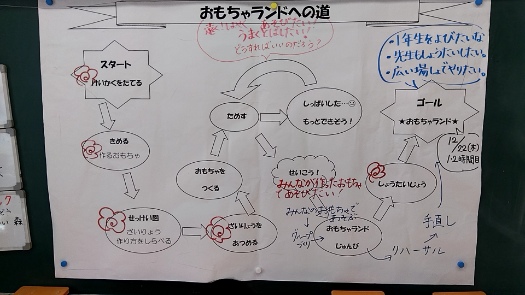 おもちゃランドへの道
あそびたい!
うまくとばしたい!
どうすればいいのだろう?
・1年生をよびたいな
・先生もしょうたいしたい。
・広い場しょでやりたい。
スタート
きめる
作るおもちゃ
せっけい図
ざいりょう
作り方をしらべる
ざいりょうを
あつめる
おもちゃを
つくる
ためす
しっぱいした…
もっとできそう!
せいこう!
みんなが作ったおもちゃ
であそびたい!
みんなのおもちゃで
おもちゃランド
じゅんび
しょうたいじょう
ゴール
★おもちゃランド★
12/22(木)
1・2時間目
手直し
リハーサル